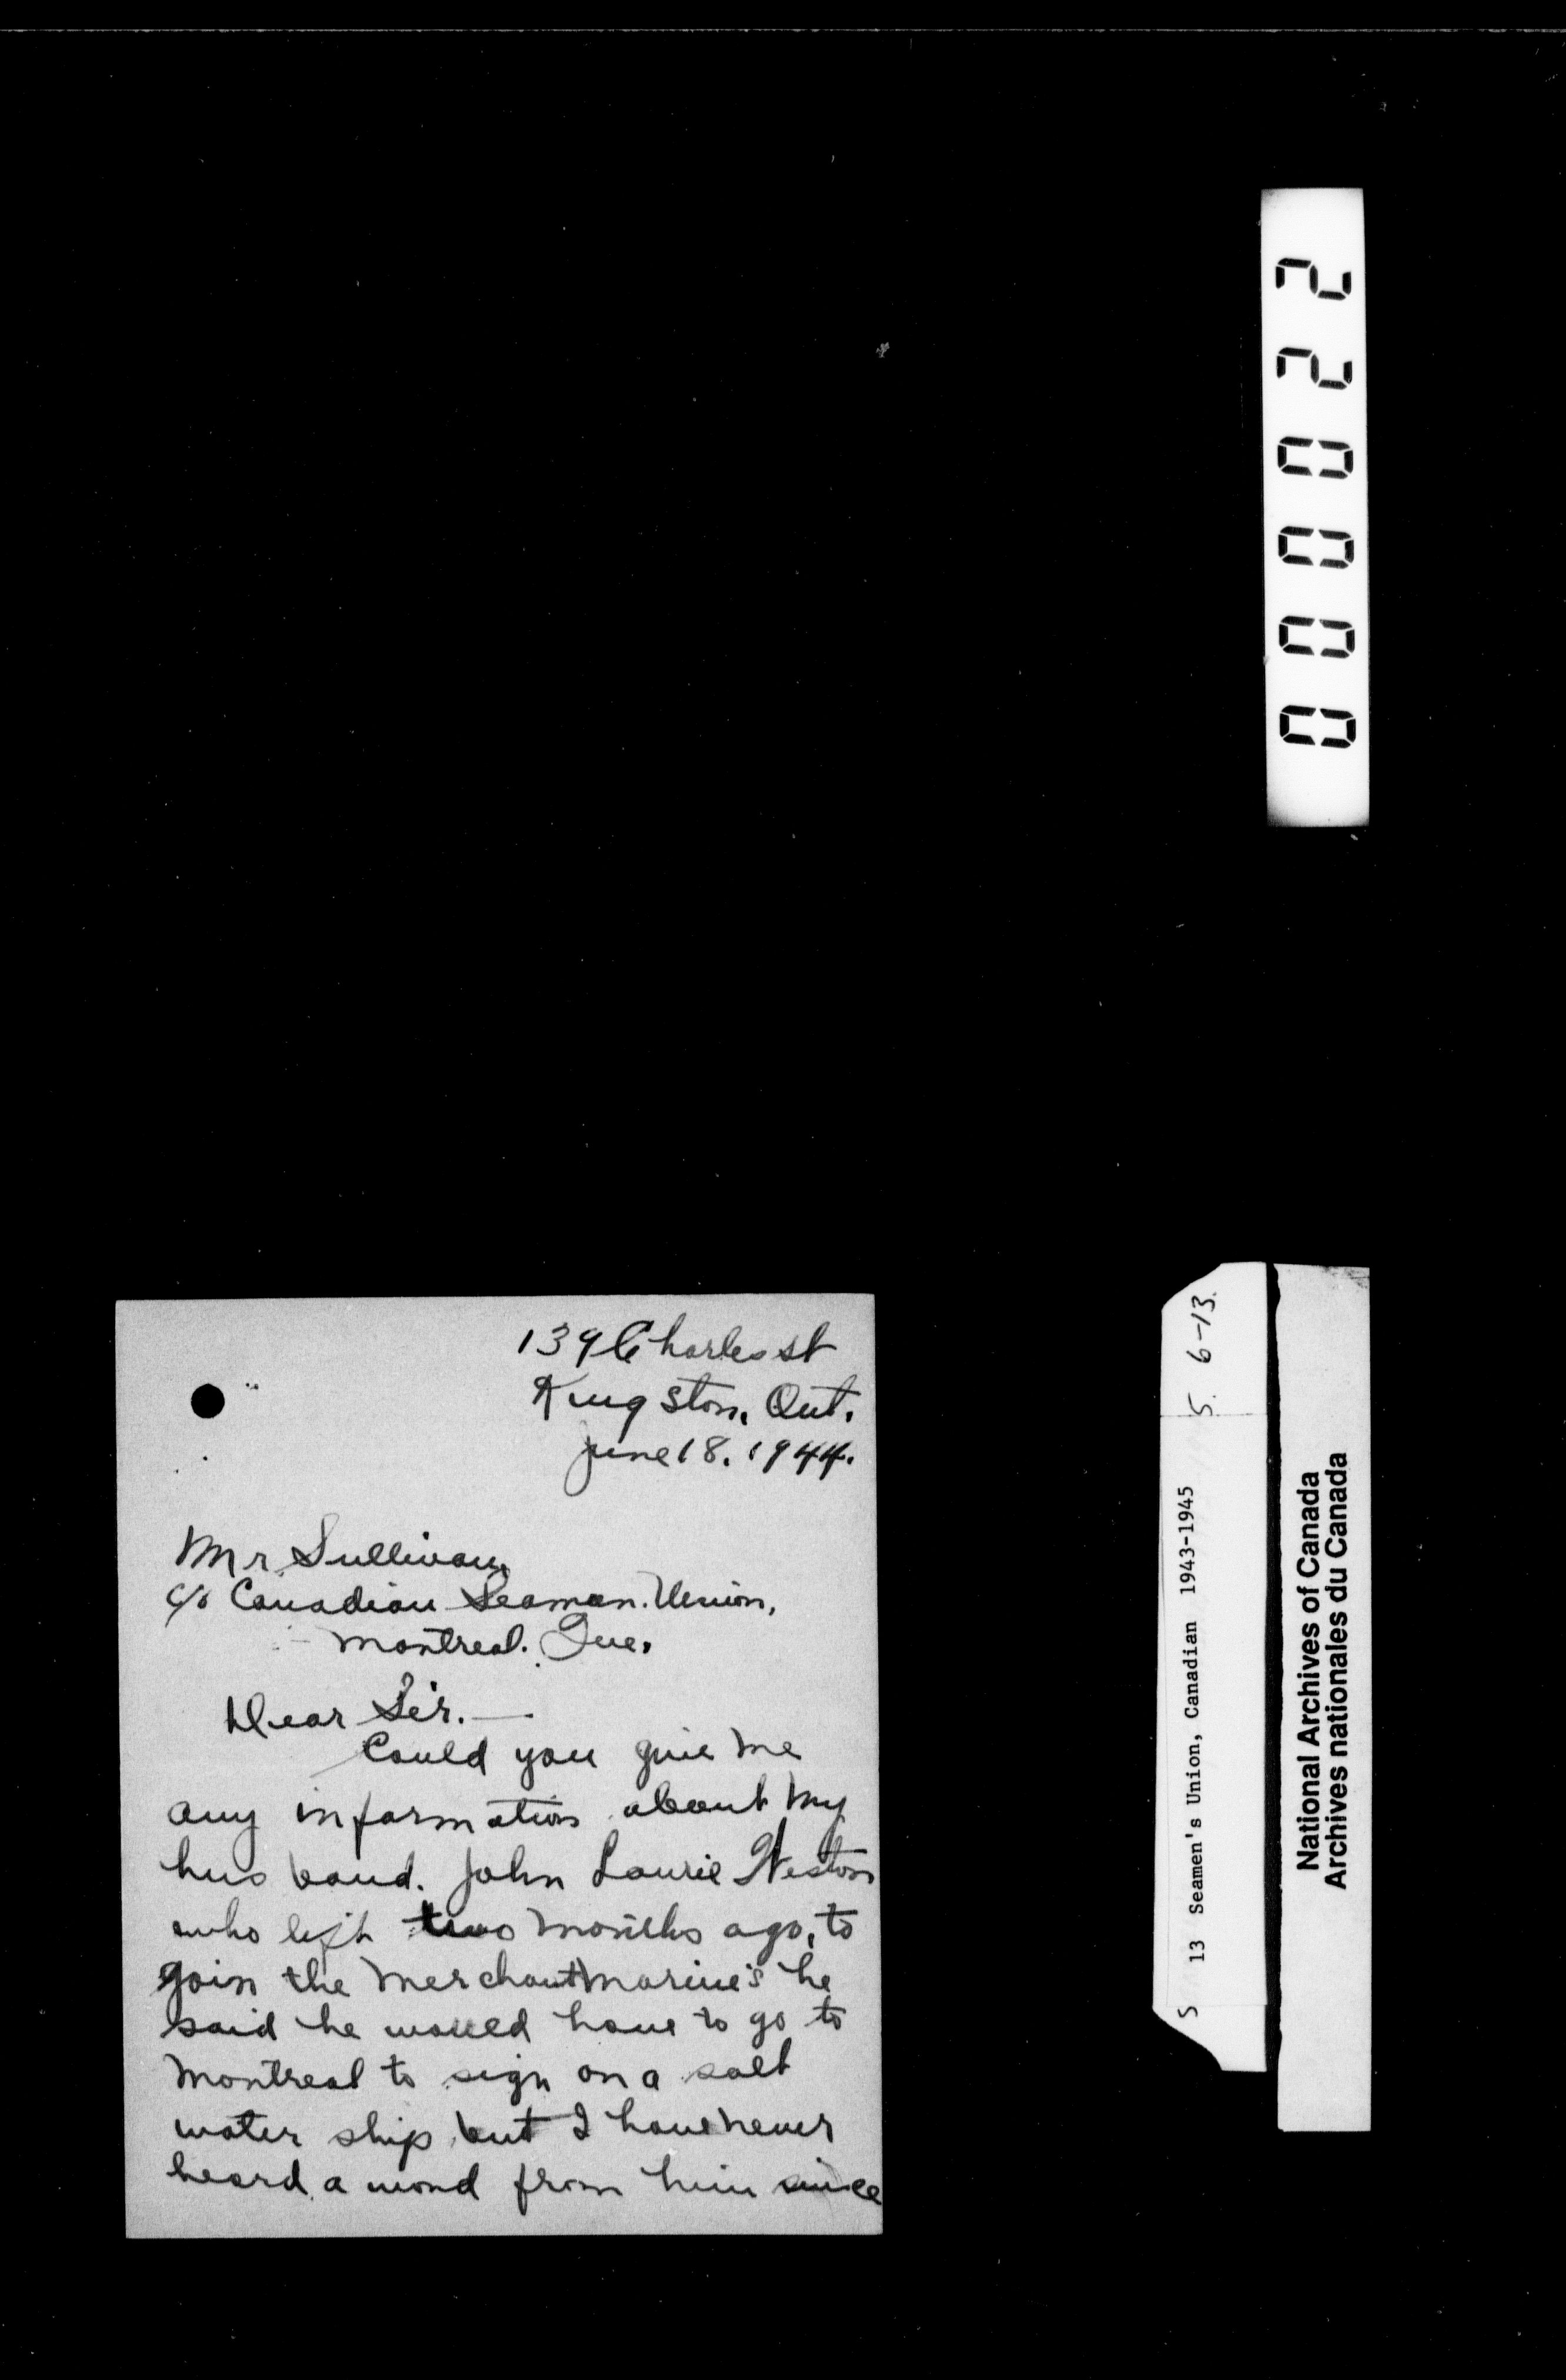 139 Charles St
Kingston, Ont.
June 18. 1944.
Mr. Sullivan,
c/o Canadian Seaman. Union,
Montreal. Que.
Dear Sir. —
Could you give me
any information about my
husband. John Laurie Weston
who left two months ago, to
join the Merchant marine's he
said he would have to go to
Montreal to sign on a salt
water ship but I have never
heard a word from him since
000022
S 13 Seamen's Union, Canadian 1943-1945 5. 6-13.
National Archives of Canada
Archives nationales du Canada